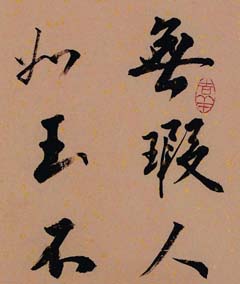 無瑕人
如玉不